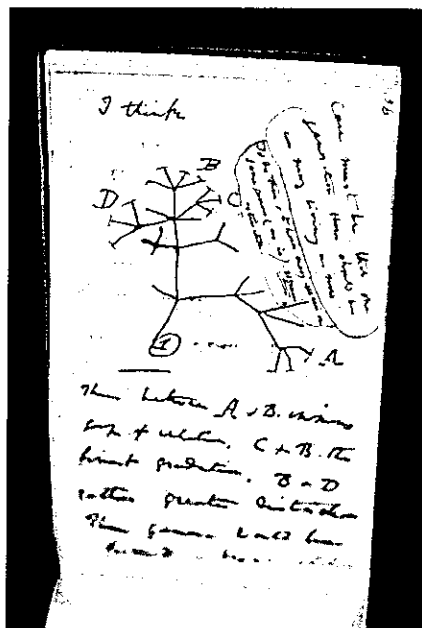 36
I think
Case must be that one
generation then should be
as many living as now
To do this & to have many species in
same genus (as is) requires
extinction
B
D
C
A
1
Thus between A & B. immense
gap of relation. C & B. the
finest gradation, B & D
rather greater distinction
Thus genera would be
formed.